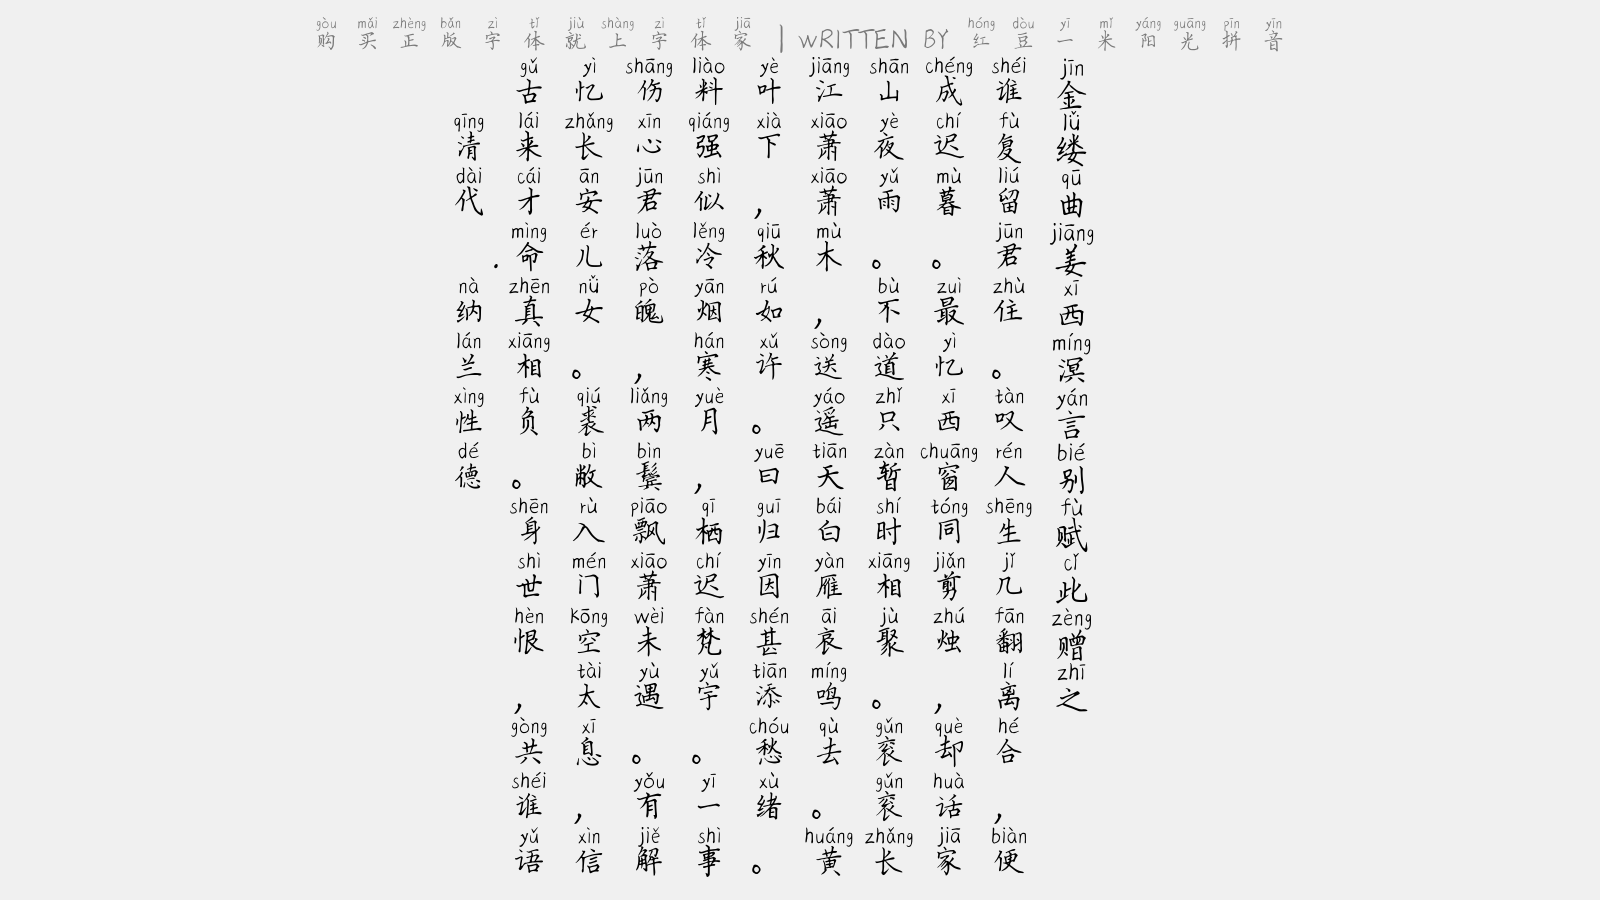 gòu mǎi zhèng bǎn zì tǐ jiù shàng zì tǐ jiā hóng dòu yī mǐ yáng guāng pīn yīn
购买正版字体就上字体家 | WRITTEN BY 红豆一米阳光拼音
jīn lǚ qū jiāng xī míng yán bié fù cǐ zèng zhī
金缕曲姜西溟言别赋此赠之
shéi fù liú jūn zhù tàn rén shēng jǐ fān lí hé biàn
谁复留君住。叹人生几翻离合，便
chéng chí mù zuì yì xī chuāng tóng jiǎn zhú què huà jiā
成迟暮。最忆西窗同剪烛，却话家
shān yè yǔ bù dào zhǐ zàn shí xiāng jù gǔn gǔn zhǎng
山夜雨。不道只暂时相聚。衮衮长
jiāng xiāo xiāo mù sòng yáo tiān bái yàn āi míng qù huáng
江萧萧木，送遥天白雁哀鸣去。黄
yè xià qiū rú xǔ yuē guī yīn shén tiān chóu xù
叶下，秋如许。曰归因甚添愁绪。
liào qiáng shì lěng yān hán yuè qī chí fàn yǔ yī shì
料强似冷烟寒月，栖迟梵宇。一事
shāng xīn jūn luò pò liǎng bìn piāo xiāo wèi yù yǒu jiě
伤心君落魄，两鬓飘萧未遇。有解
yì zhǎng ān ér nǚ qiú bì rù mén kōng tài xī xìn
忆长安儿女。裘敝入门空太息，信
gǔ lái cái mìng zhēn xiāng fù shēn shì hèn gòng shéi yǔ
古来才命真相负。身世恨，共谁语
qīng dài nà lán xìng dé
清代.纳兰性德